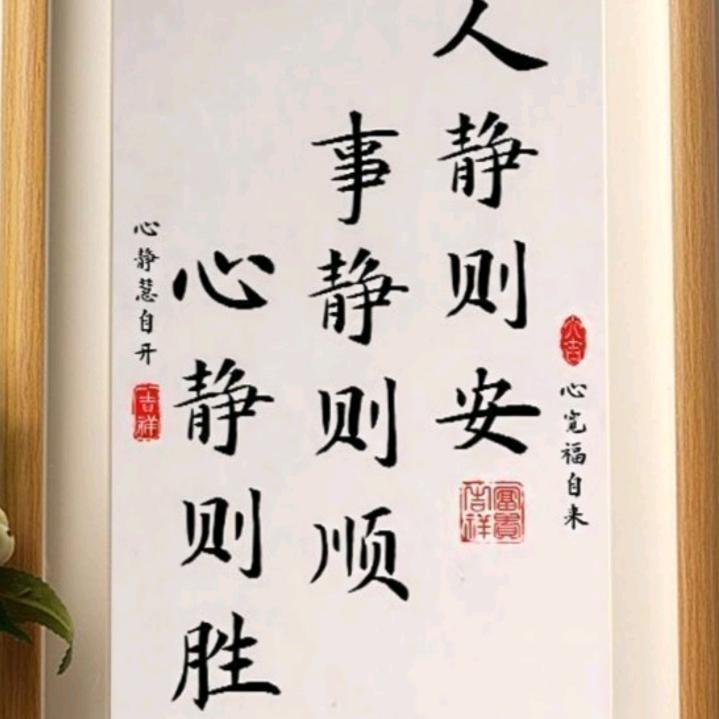 大吉
心宽福自来
人静则安
富贵吉祥
事静则顺
心静则胜
心静慧自开
吉祥